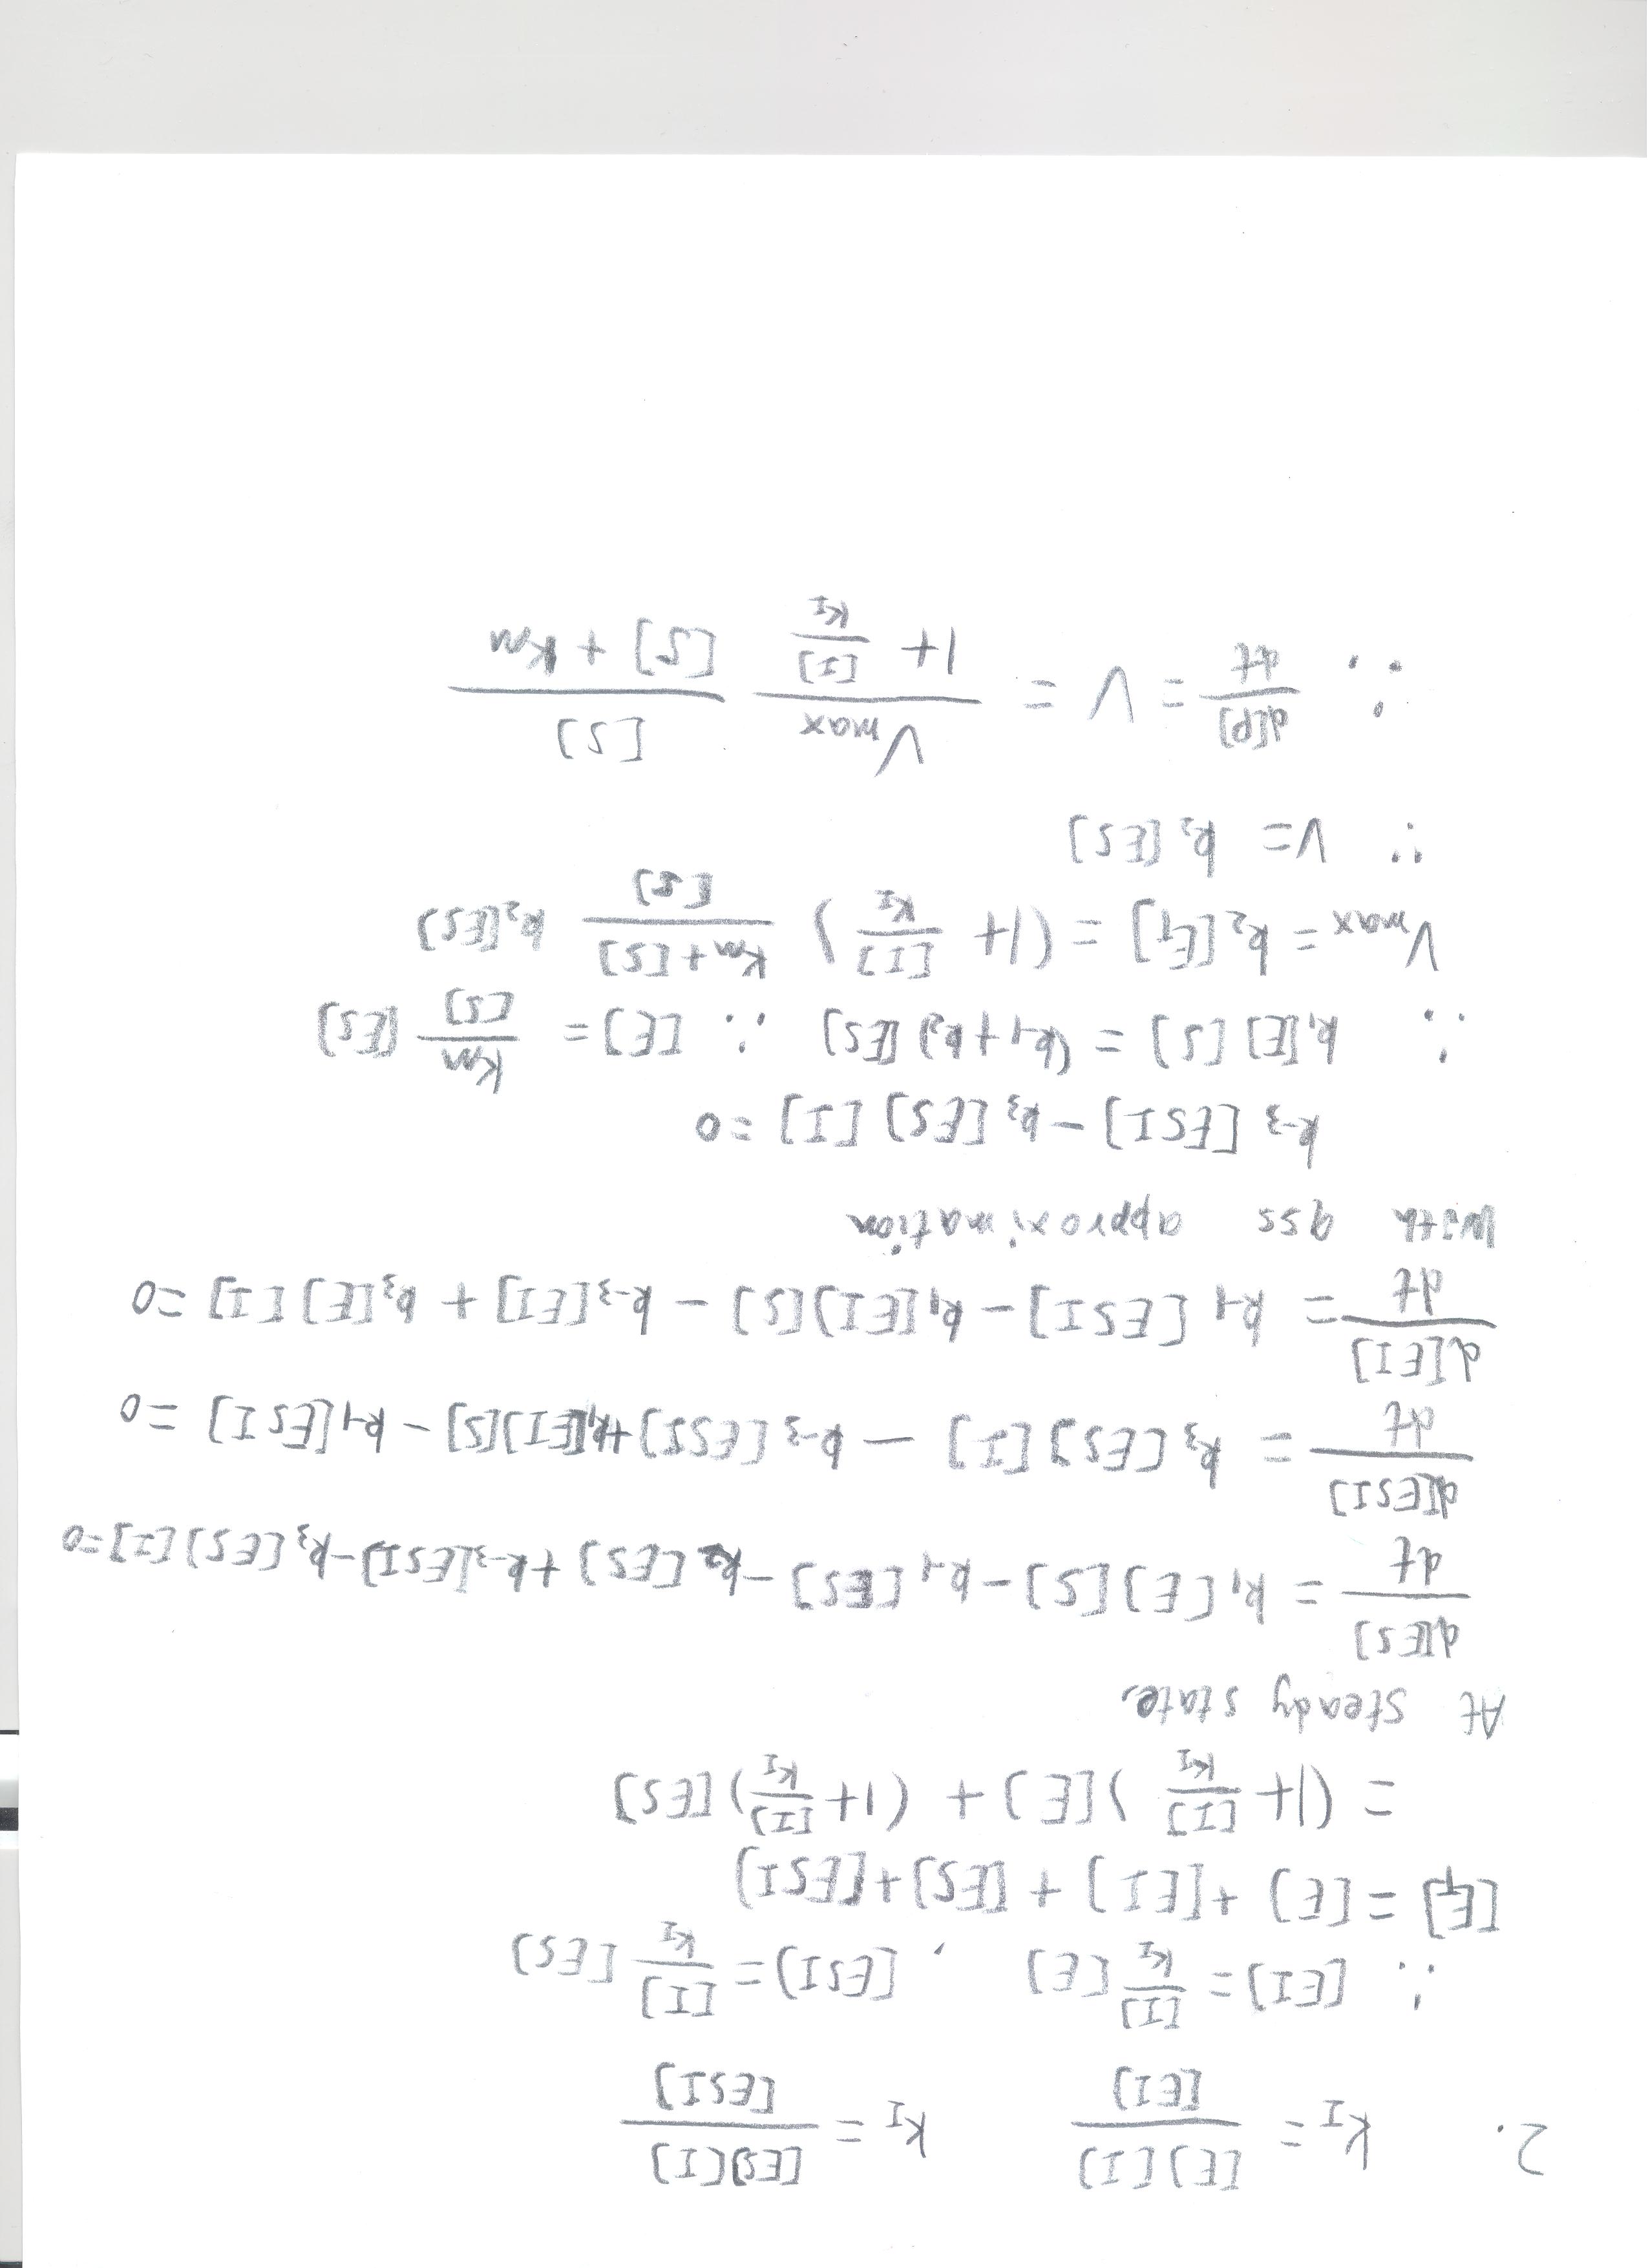 2. K_I = [E][I] / [EI]   K_I = [ES][I] / [ESI]
∴ [EI] = [I]/K_I [E] , [ESI] = [I]/K_I [ES]
[E_T] = [E] + [EI] + [ES] + [ESI]
= (1 + [I]/K_I )[E] + (1 + [I]/K_I)[ES]
At steady state,
d[ES]/dt = k_1[E][S] - k_-1[ES] - k_2[ES] + k_-3[ESI] - k_3[ES][I] = 0
d[ESI]/dt = k_3[ES][I] - k_-3[ESI] + k_1[EI][S] - k_-1[ESI] = 0
d[EI]/dt = k_-1[ESI] - k_1[EI][S] - k_-3[EI] + k_3[E][I] = 0
With qss approximation
k_-3[ESI] - k_3[ES][I] = 0
∴ k_1[E][S] = (k_-1 + k_2)[ES] ∴ [E] = Km/[S] [ES]
V_max = k_2[E_T] = (1 + [I]/K_I ) Km+[S] / [S] k_2[ES]
∵ V = k_2[ES]
∴ d[P]/dt = V = V_max / 1 + [I]/K_I   [S] / [S] + Km